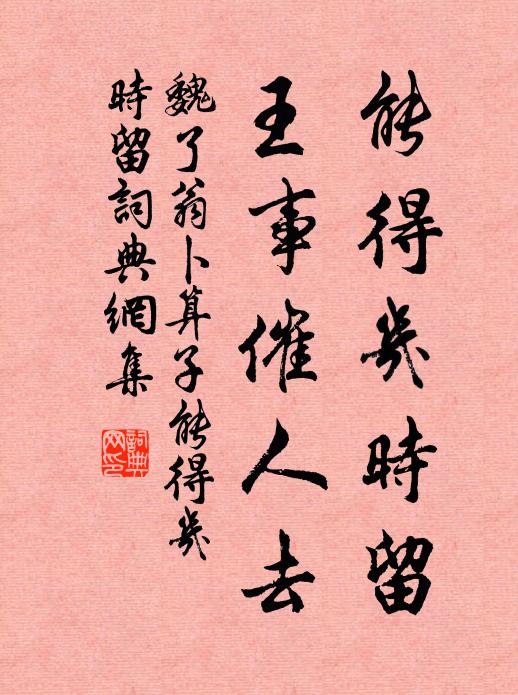 能得幾時留
王事催人去
魏了翁卜算子能得幾
時留詞典網集
詞典
网印